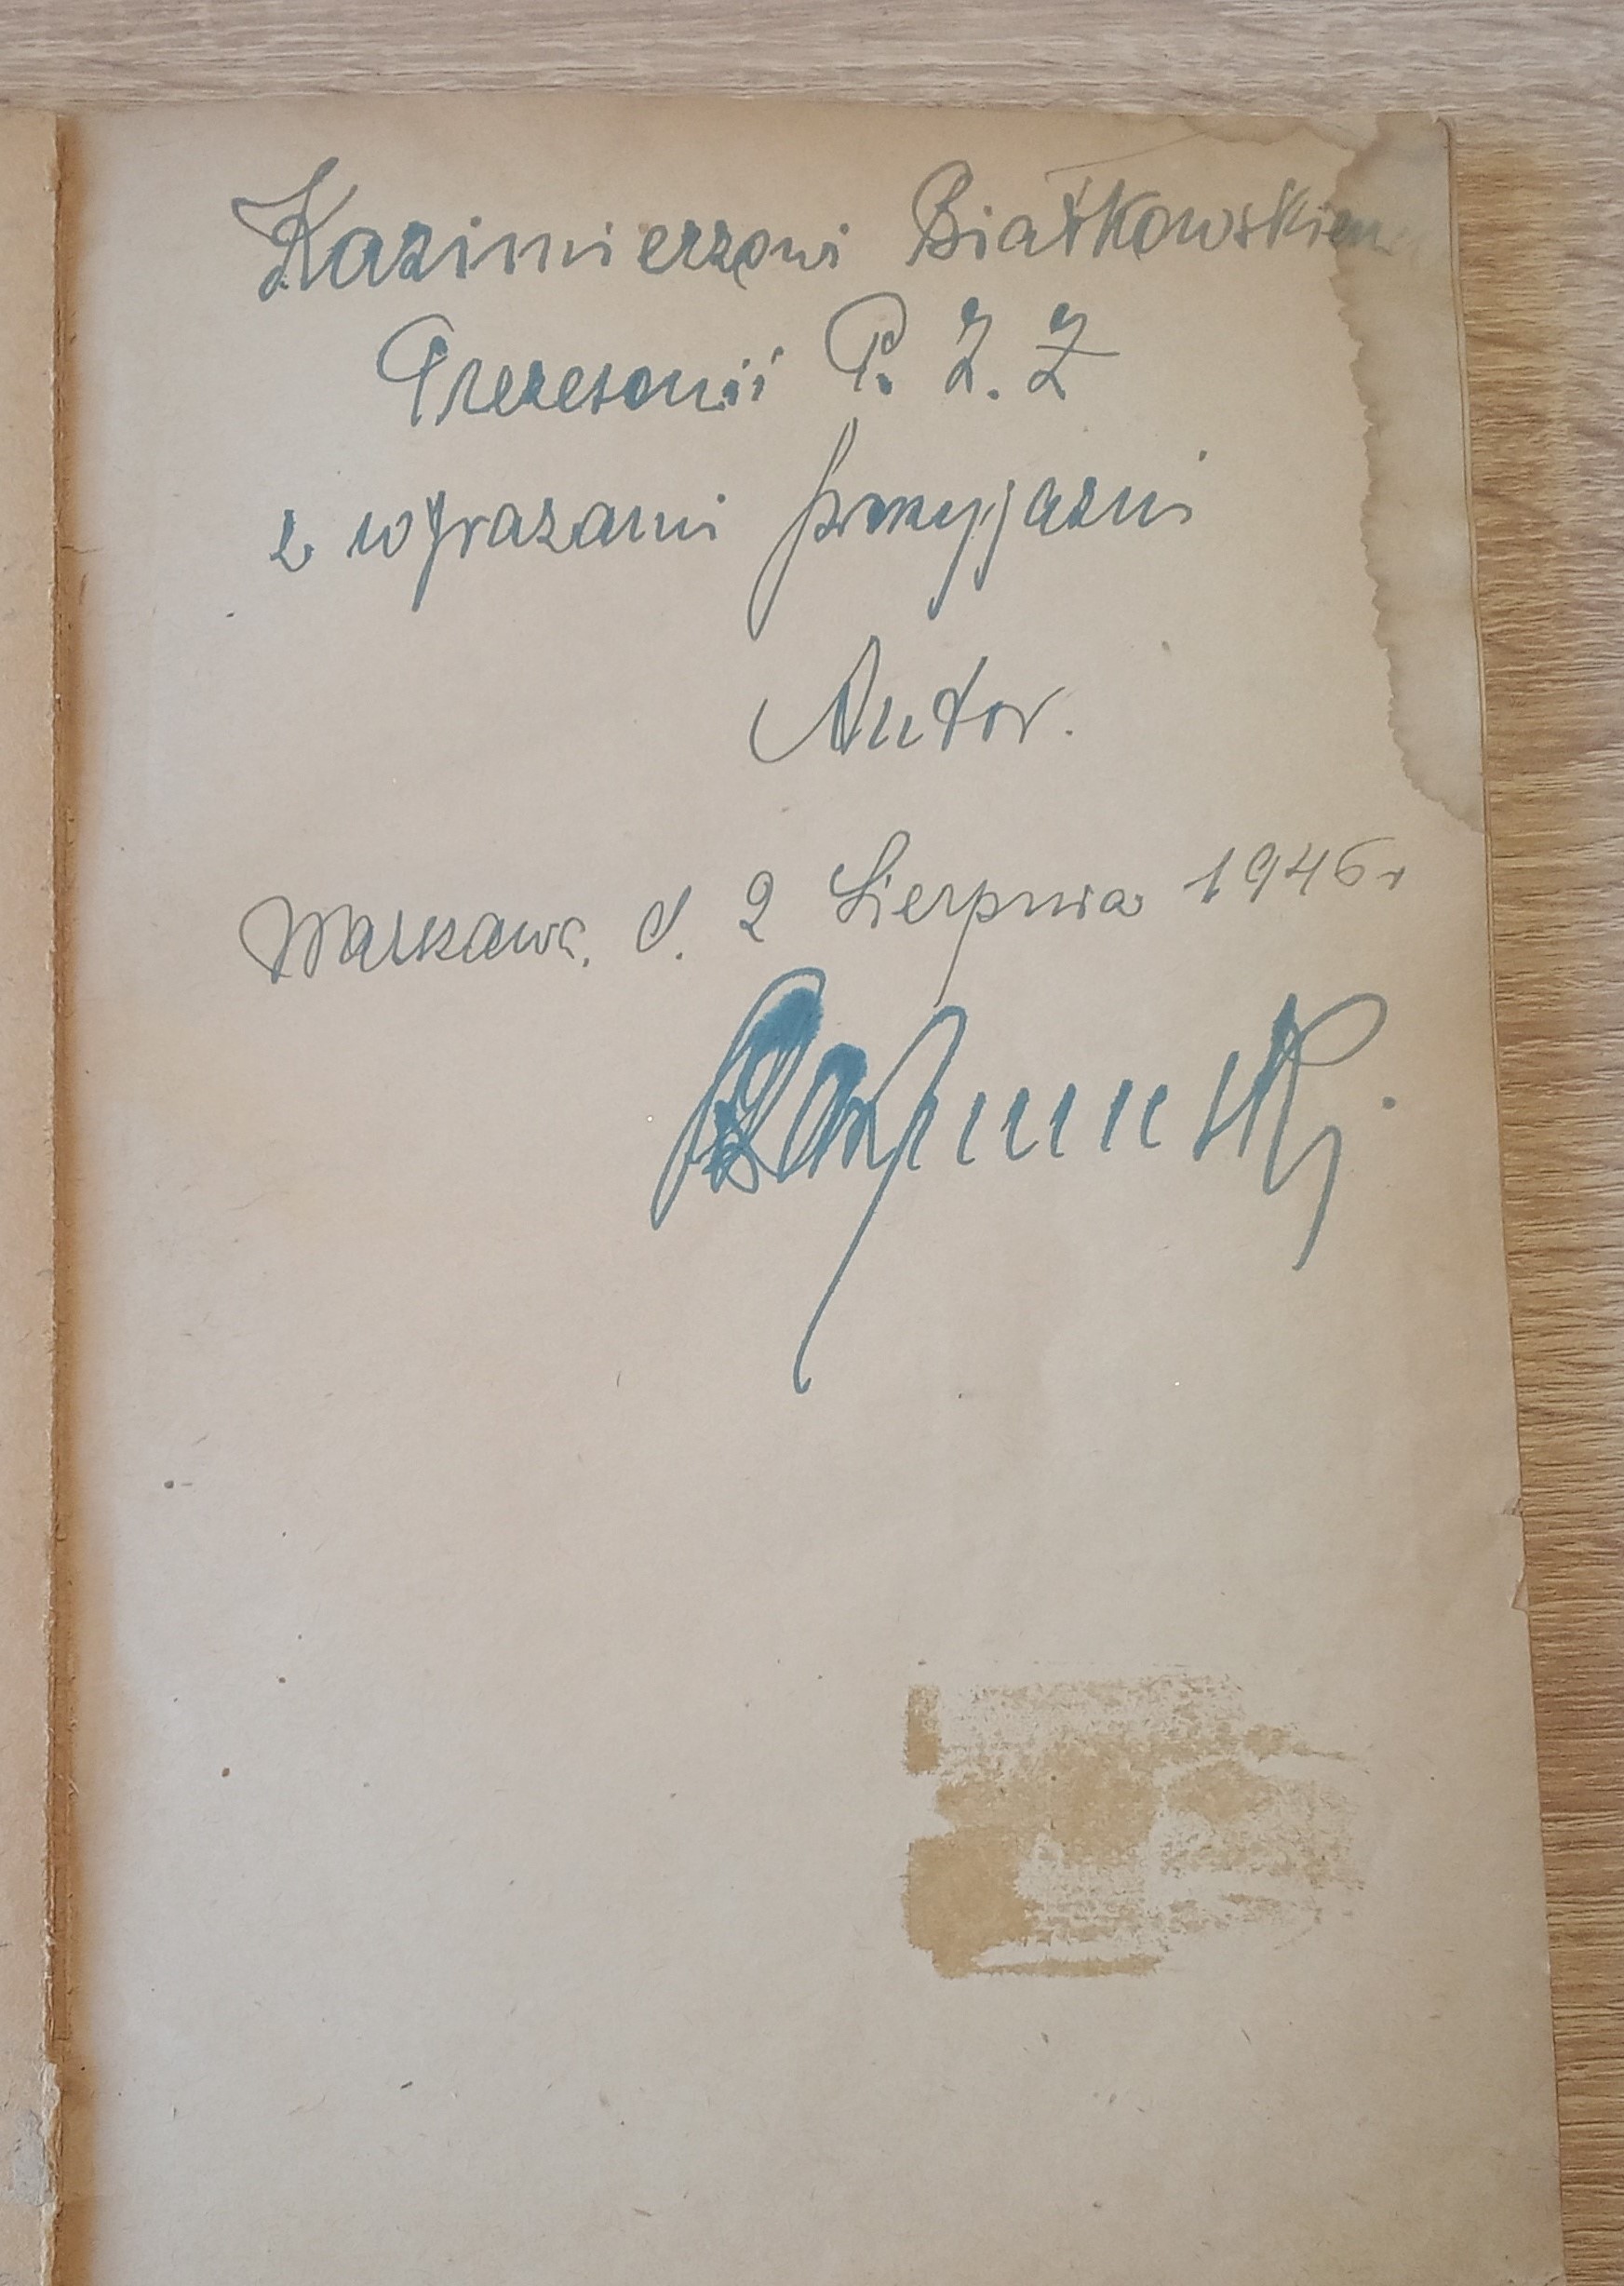 Kazimierzowi Białkowskiem
Prezesowi P. Z. Z
z wyrazami przyjazni
Autor.
Warszawa, d. 2 Sierpnia 1946 r